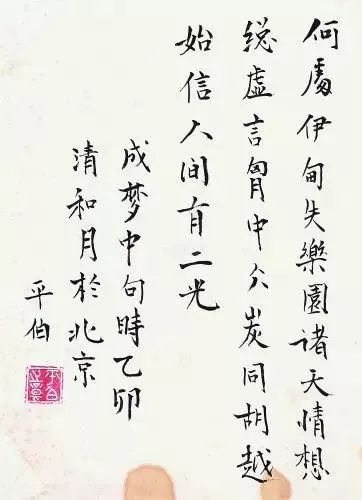 何處伊甸失樂園諸天情想
緫虚言胷中仌炭同胡越
始信人间有二光
成梦中句時乙卯
清和月於北京
平伯